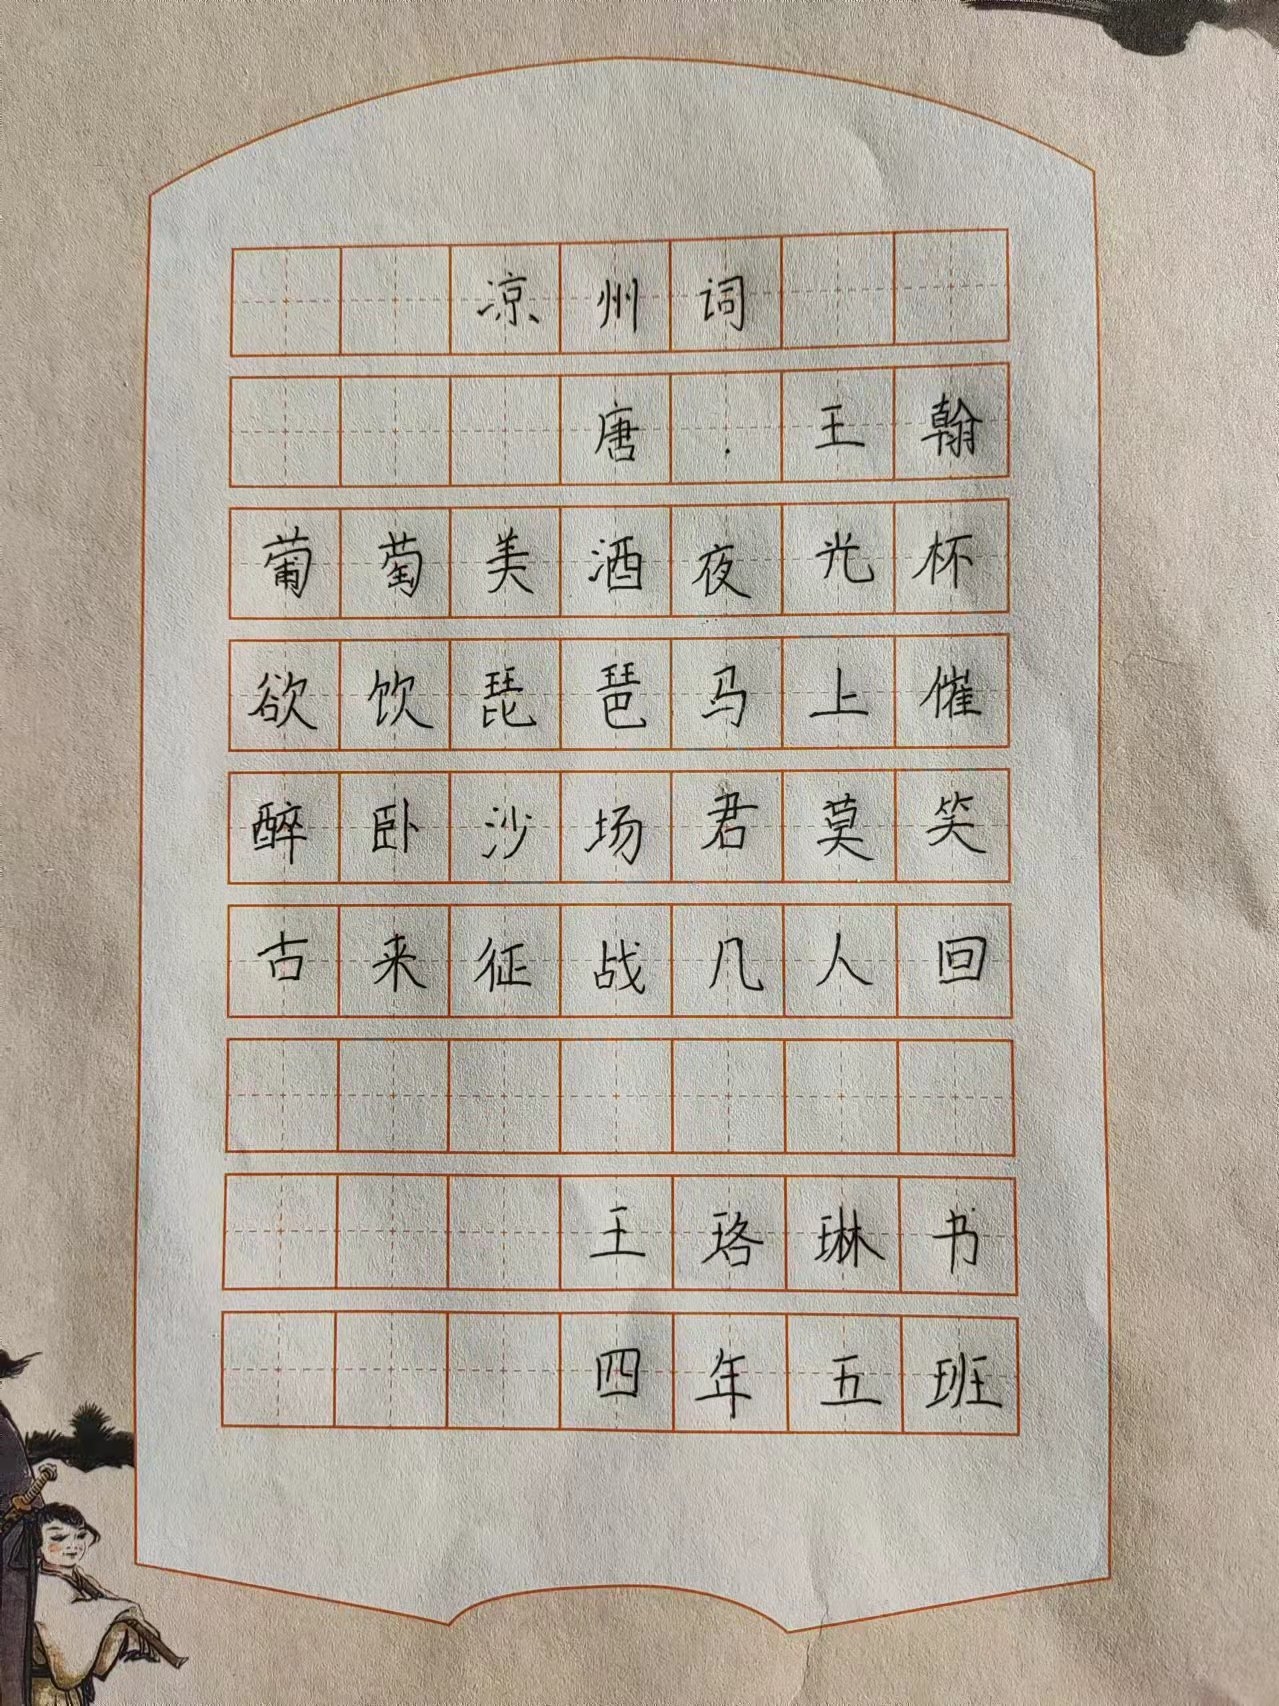 凉州词
唐·王翰
葡萄美酒夜光杯
欲饮琵琶马上催
醉卧沙场君莫笑
古来征战几人回
王珞琳书
四年五班